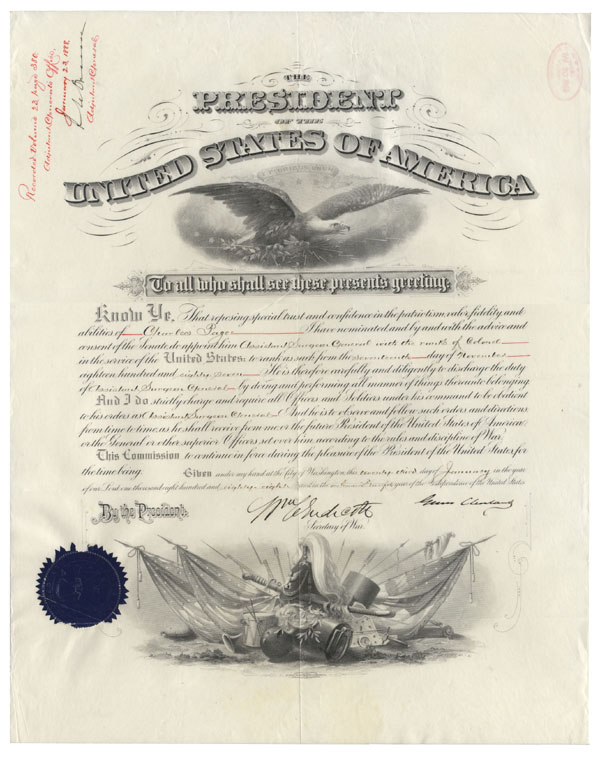 Recorded Volume 22 page 380
Adjutant General's Office
January 23, 1888
Adjutant General.
THE
PRESIDENT
OF THE
UNITED STATES OF AMERICA
To all who shall see these presents greeting:
Know Ye, That reposing special trust and confidence in the patriotism, valor, fidelity and
abilities of Charles Page I have nominated and by and with the advice and
consent of the Senate do appoint him Assistant Surgeon General with the rank of Colonel
in the service of the United States: to rank as such from the seventeenth day of November
eighteen hundred and eighty seven He is therefore carefully and diligently to discharge the duty
of Assistant Surgeon General by doing and performing all manner of things thereunto belonging
And I do strictly charge and require all Officers and Soldiers under his command to be obedient
to his orders as Assistant Surgeon General And he is to observe and follow such orders and directions
from time to time, as he shall receive from me or the future President of the United States of America,
or the General or other superior Officers set over him, according to the rules and discipline of War.
This Commission to continue in force during the pleasure of the President of the United States for
the time being.
Given under my hand at the City of Washington, this twenty third day of January in the year
of our Lord one thousand eight hundred and eighty eight and in the one hundred and twelfth year of the Independence of the United States
By the President.
Wm C Endicott
Secretary of War.
Grover Cleveland